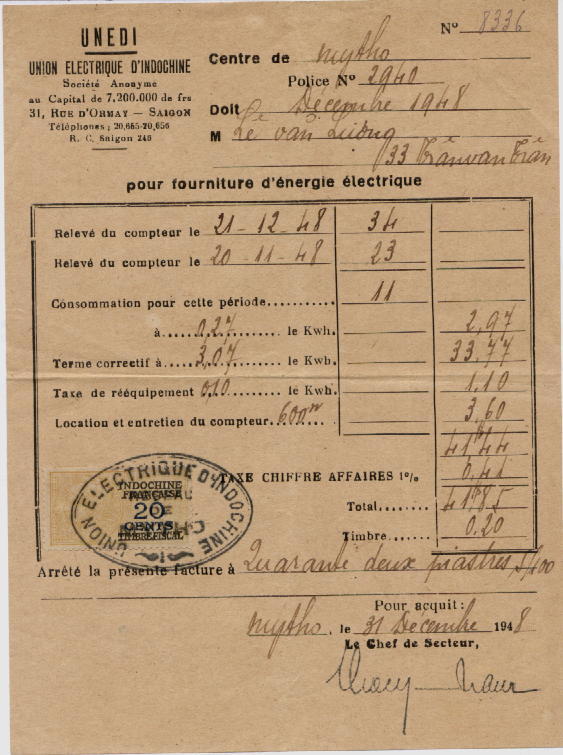 UNEDI
UNION ELECTRIQUE D'INDOCHINE
Société Anonyme
au Capital de 7,200.000 de frs
31, RUE D'ORMAY — SAIGON
Téléphones : 20,655-20,656
R. C. Saigon 246
N° 8336
Centre de Mytho
Police N° 2940
Doit Décembre 1948
M Lê Văn Lương
33 Trân van Trân
pour fourniture d'énergie électrique
Relevé du compteur le 21-12-48 34
Relevé du compteur le 20-11-48 23
Consommation pour cette période.......... 11
à 0,27 le Kwh. 2,97
Terme correctif à 3,07 le Kwh. 33,77
Taxe de rééquipement 0,10 le Kwh. 1,10
Location et entretien du compteur. 600 3,60
41,44
TAXE CHIFFRE AFFAIRES 1% 0,41
Total....... 41,85
Timbre....... 0,20
UNION ELECTRIQUE D'INDOCHINE
INDOCHINE
FRANÇAISE
20
CENTS
TIMBRE FISCAL
Arrêté la présente facture à Quarante deux piastres
Pour acquit :
Mytho, le 31 Décembre 1948
Le Chef de Secteur,